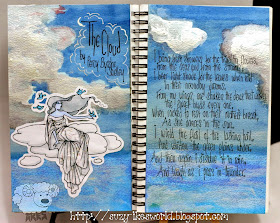 The Cloud
by
Percy Bysshe
Shelley
I bring fresh showers for the thirsting flowers,
From the seas and the streams;
I bear light shade for the leaves when laid
In their noonday dreams.
From my wings are shaken the dews that waken
The sweet buds every one,
When rocked to rest on their mother's breast,
As she dances about the sun.
I wield the flail of the lashing hail,
And whiten the green plains under,
And then again I dissolve it in rain,
And laugh as I pass in thunder.
http://suzyitksworld.blogspot.com